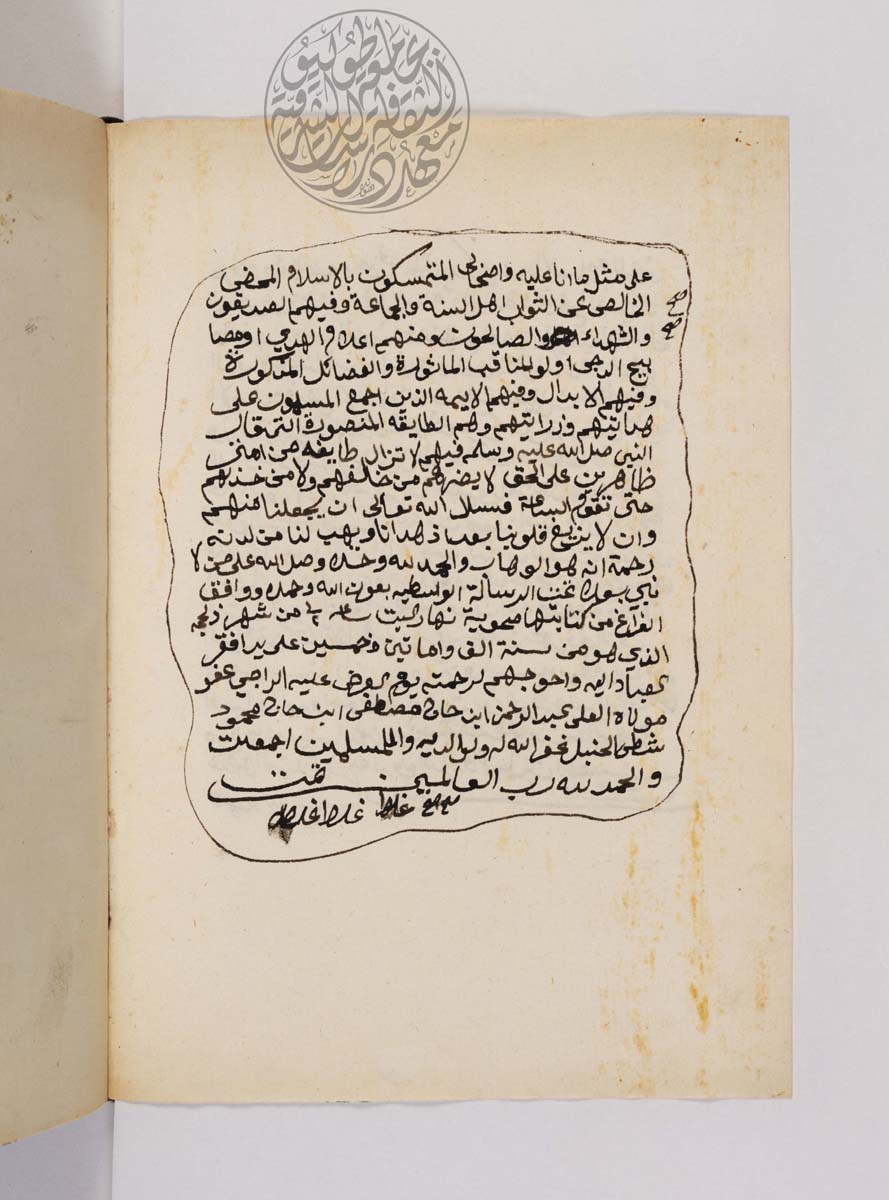 على مثل ما انا عليه واصحابي المتمسكون بالاسلام المحض
الخالص عن الثواب اهل السنة والجماعة وفيهم الصديقون
والشهداء والصالحون ومنهم اعلام الهدى او مصا
بيح الدجى اولو المناقب الماثورة والفضائل المذكورة
وفيهم الابدال وفيهم الايمه الذين اجمع المسلمون على
هدايتهم ودرايتهم وهم الطايفه المنصورة التي قال
النبي صل الله عليه وسلم فيهم لا تزال طايفه من امتي
ظاهرين على الحق لا يضرهم من خالفهم ولا من خذلهم
حتى تقوم الساعة فنسال الله تعالى ان يجعلنا منهم
وان لا يزيغ قلوبنا بعد اذ هدانا ويهب لنا من لدنه
رحمة انه هو الوهاب والحمد لله وحده وصل الله على من لا
نبي بعده تمت الرسالة الواسطيه بعون الله وحمده ووافق
الفراغ من كتابتها ضحوية نهار السبت من شهر ذلحجه
الذي هو من سنة الف واماتين وخمسين على يد افقر
عباد الله واحوجهم لرحمته يوم العرض عليه الراجي عفو
مولاه العلي عبد الرحمن ابن حاج مصطفى ابن حاج محمود
شطي الحنبلي غفر الله له ولوالديه والمسلمين اجمعين
والحمد لله رب العالمين تمت
صح صح
غلط